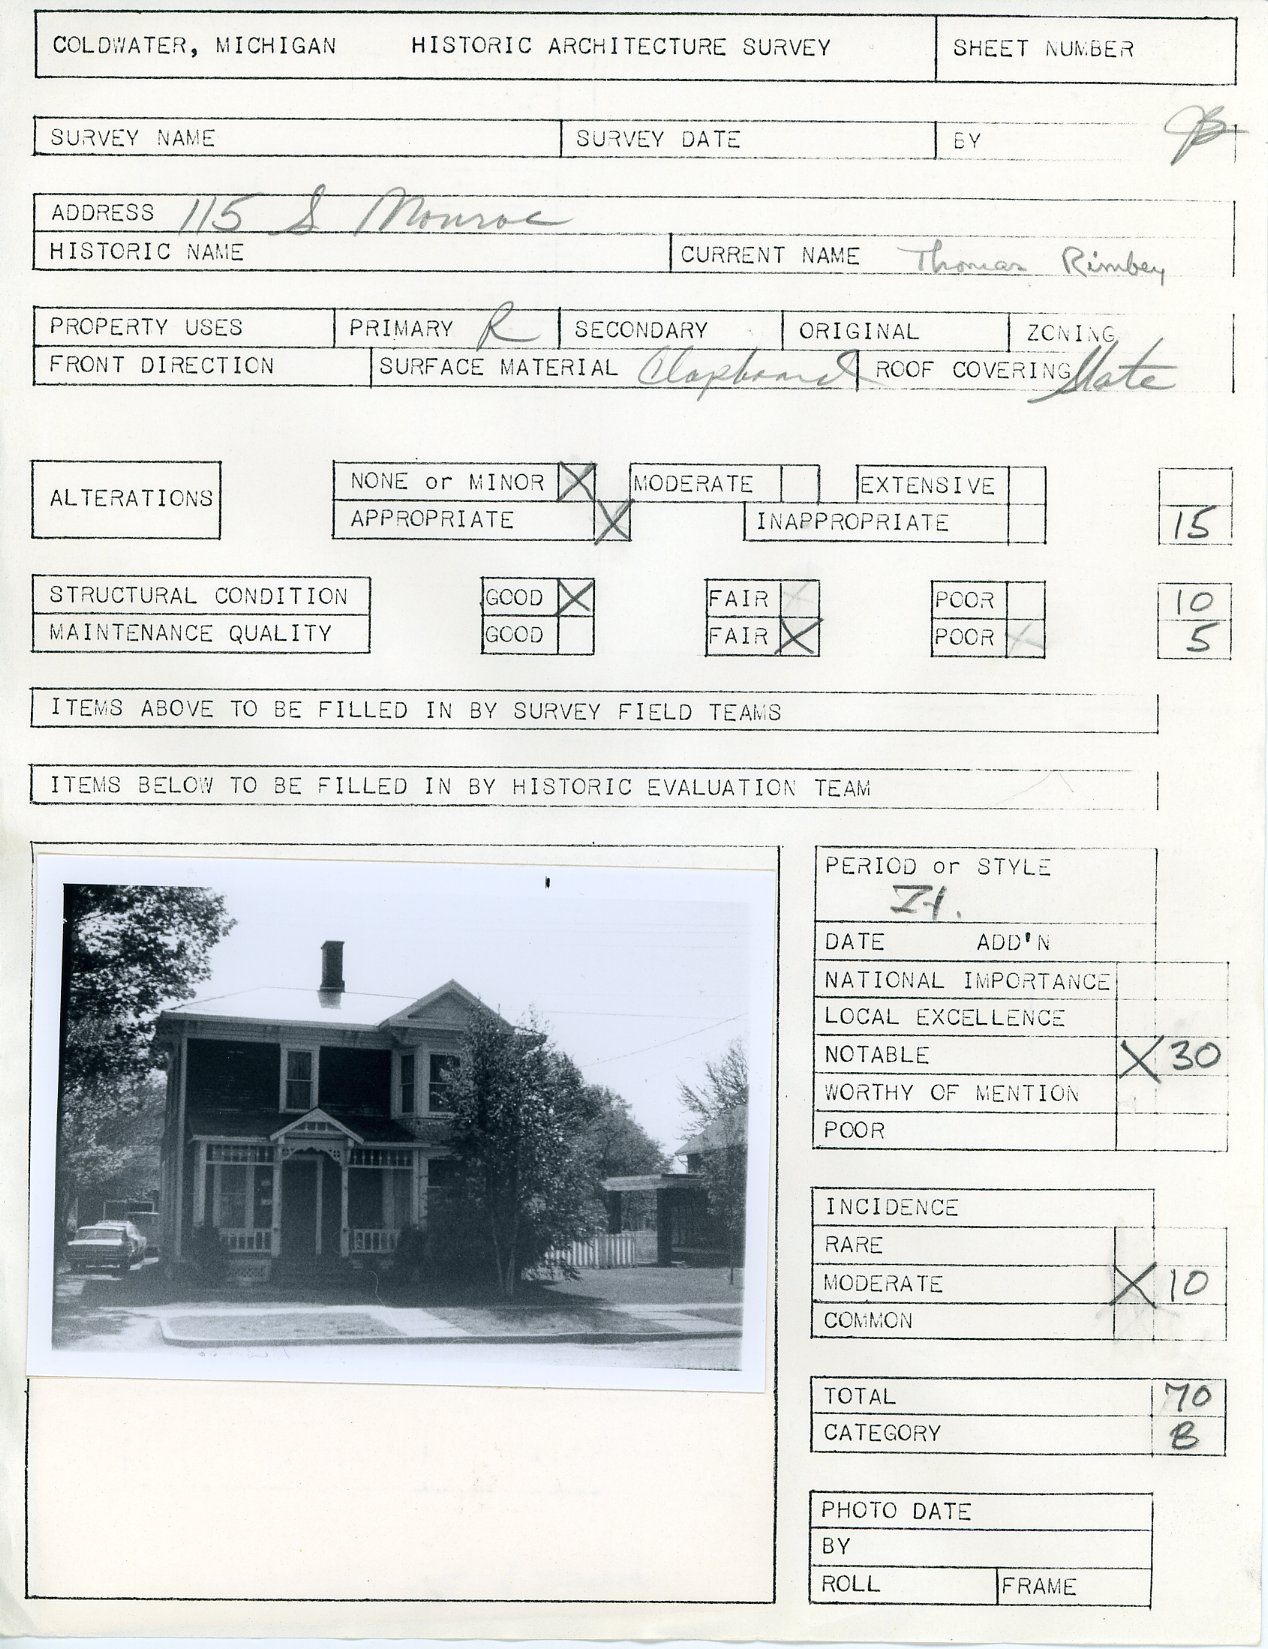 COLDWATER, MICHIGAN HISTORIC ARCHITECTURE SURVEY SHEET NUMBER
SURVEY NAME SURVEY DATE BY
ADDRESS 115 S Monroe
HISTORIC NAME CURRENT NAME Thomas Rimbey
PROPERTY USES PRIMARY R SECONDARY ORIGINAL ZONING
FRONT DIRECTION SURFACE MATERIAL Clapboard ROOF COVERING Slate
ALTERATIONS NONE or MINOR X MODERATE EXTENSIVE
APPROPRIATE X INAPPROPRIATE 15
STRUCTURAL CONDITION GOOD X FAIR POOR 10
MAINTENANCE QUALITY GOOD FAIR X POOR 5
ITEMS ABOVE TO BE FILLED IN BY SURVEY FIELD TEAMS
ITEMS BELOW TO BE FILLED IN BY HISTORIC EVALUATION TEAM
PERIOD or STYLE
It.
DATE ADD'N
NATIONAL IMPORTANCE
LOCAL EXCELLENCE
NOTABLE X 30
WORTHY OF MENTION
POOR
INCIDENCE
RARE
MODERATE X 10
COMMON
TOTAL 70
CATEGORY B
PHOTO DATE
BY
ROLL FRAME